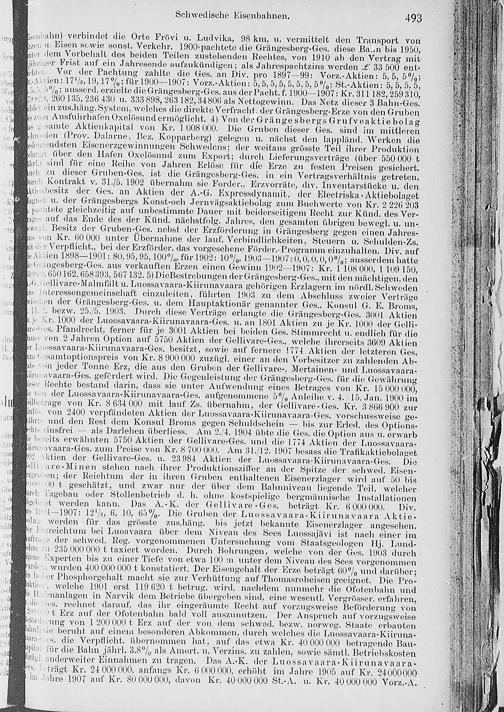 Schwedische Eisenbahnen. 493
verbindet die Orte Frövi u. Ludvika, 98 km, u. vermittelt den Transport von
u. Eisen sowie sonst. Verkehr. 1900 pachtete die Grängesberg-Ges. diese bis 1950,
dem Vorbehalt des beiden Teilen zustehenden Rechtes, von 1910 ab den Vertrag mit
Frist auf ein Jahresende aufzukündigen; als Jahrespachtzins werden £ 33 500 ent-
Vor der Pachtung zahlte die Ges. an Div. pro 1897—99: Vorz.-Aktien: 5, 5, 5%;
17½, 19, 17%; für 1900—1907: Vorz.-Aktien: 5, 5, 5, 5, 5, 5, 5, 5%; St.-Aktien: 5, 5, 5, 5,
ausserd. erzielte die Grängesberg-Ges. aus der Pacht f. 1900—1907: Kr. 311 182, 259 310,
260 135, 236 430 u. 333 898, 263 182, 34 806 als Nettogewinn. Das Netz dieser 3 Bahn-Ges.
ein zus.häng. System, welches die direkte Verfracht der Grängesberg-Erze von den Gruben
Ausfuhrhafen Oxelösund ermöglicht. 4) Von der Grängesbergs Grufveaktiebolag
Aktienkapital von Kr. 1 008 000. Die Gruben dieser Ges. sind im mittleren
(Prov. Dalarne, Bez. Kopparberg) gelegen u. nächst den lappländ. Werken die
Eisenerzgewinnung Schwedens; der weitaus grösste Teil ihrer Produktion
über den Hafen Oxelösund zum Export; durch Lieferungsverträge (über 550 000 t
sind für eine Reihe von Jahren Erlöse für die Erze zu festen Preisen gesichert.
zu dieser Gruben-Ges. ist die Grängesberg-Ges. in ein Vertragsverhältnis getreten,
Kontrakt v. 31./5. 1902 übernahm sie Forder., Erzvorräte, div. Inventarstücke u. den
der Ges. an Aktien der A.-G. Expressdynamit, der Electriska-Aktiebolaget
u. der Grängesbergs Konst-och Jernvägsaktiebolag zum Buchwerte von Kr. 2 226 203
gleichzeitig auf unbestimmte Dauer mit beiderseitigem Recht zur Künd. des Ver-
auf das Ende des der Künd. nächstfolg. Jahres, den gesamten übrigen bewegl. u. un-
Besitz der Gruben-Ges. nebst der Erzförderung in Grängesberg gegen einen Jahres-
von Kr. 60 000 unter Übernahme der lauf. Verbindlichkeiten, Steuern u. Schulden-Zs.
der Verpflicht., bei der Erzförder. das vorgesehene Förder.-Programm einzuhalten. Div. auf
1898—1901: 80, 95, 95, 100%, für 1902: 10%, 1903—1907: 0, 0, 0, 0, 0%; ausserdem hatte
aus verkauften Erzen einen Gewinn 1902—1907: Kr. 1 108 000, 1 109 150,
650 162, 658 393, 567 132. 5) Die Bestrebungen der Grängesberg-Ges., mit den mächtigen, den
Gellivare-Malmfält u. Luossavaara-Kiirunavaara gehörigen Erzlagern im nördl. Schweden
Interessengemeinschaft einzuleiten, führten 1903 zu dem Abschluss zweier Verträge
der Grängesberg-Ges. u. dem Hauptaktionär genannter Ges., Konsul G. E. Broms,
bezw. 25./5. 1903. Durch diese Verträge erlangte die Grängesberg-Ges. 3001 Aktien
je Kr. 1000 der Luossavaara-Kiirunavaara-Ges. u. an 1801 Aktien zu je Kr. 1000 der Gelli-
Pfandrecht, ferner für je 3001 Aktien bei beiden Ges. Stimmrecht u. endlich für die
von 2 Jahren Option auf 5750 Aktien der Gellivare-Ges., welche ihrerseits 3609 Aktien
besitzt, sowie auf fernere 1774 Aktien der letzteren Ges.
von Kr. 8 900 000 zuzügl. einer an den Vorbesitzer zu zahlenden Ab-
von jeder Tonne Erz, die aus den Gruben der Gellivare-, Mertainen- und Luossavaara-
gefördert wird. Die Gegenleistung der Grängesberg-Ges. für die Gewährung
Rechte bestand darin, dass sie unter Aufwendung eines Betrages von Kr. 15 000 000,
von der Luossavaara-Kiirunavaara-Ges. aufgenommene 5% Anleihe v. 4./15. Jan. 1900 im
von Kr. 8 634 000 mit lauf. Zs. übernahm, der Gellivare-Ges. Kr. 3 866 900 zur
von 2400 verpfändeten Aktien der Luossavaara-Kiirunavaara-Ges. vorschussweise ge-
und den Rest dem Konsul Broms gegen Schuldschein — bis zur Erled. des Options-
— als Darlehen überliess. Am 2./4. 1904 übte die Ges. die Option aus u. erwarb
erwähnten 5750 Aktien der Gellivare-Ges. und die 1774 Aktien der Luossavaara-
zum Preise von Kr. 8 700 000. Am 31./12. 1907 besass die Trafikaktiebolaget
Aktien der Gellivare-Ges. u. 23 984 Aktien der Luossavaara-Kiirunavaara-Ges. Die
Gellivare-Minen stehen nach ihrer Produktionsziffer an der Spitze der schwed. Eisen-
der Reichtum der in ihren Gruben enthaltenen Eisenerzlager wird auf 50 bis
t geschätzt, und zwar nur der über dem Bahnniveau liegende Teil, welcher
Tagebau oder Stollenbetrieb d. h. ohne kostspielige bergmännische Installationen
werden kann. Das A.-K. der Gellivare-Ges. beträgt Kr. 6 000 000. Div.
1907: 12½, 6, 10, 65%. Die Gruben der Luossavaara-Kiirunavaara Aktie-
werden für das grösste zus.häng. bis jetzt bekannte Eisenerzlager angesehen.
Erzreichtum bei Luossavaara über dem Niveau des Sees Luossajärvi ist nach einer im
der schwed. Reg. vorgenommenen Untersuchung vom Staatsgeologen Hj. Lund-
235 000 000 t taxiert worden. Durch Bohrungen, welche von der Ges. 1903 durch
Experten bis zu einer Tiefe von etwa 100 m unter dem Niveau des Sees vorgenommen
wurden 400 000 000 t konstatiert. Der Eisengehalt der Erze beträgt 60% und darüber;
Phosphorgehalt macht sie zur Verhüttung auf Thomasroheisen geeignet. Die Pro-
welche 1901 erst 119 620 t betrug, wird, nachdem nunmehr die Ofotenbahn und
in Narvik dem Betriebe übergeben sind, eine wesentl. Vergrösser. erfahren,
rechnet darauf, das ihr eingeräumte Recht auf vorzugsweise Beförderung von
t Erz auf der Ofotenbahn bald voll auszunutzen. Der Anspruch auf vorzugsweise
von 1 200 000 t Erz auf der von dem schwed. bezw. norweg. Staate erbauten
beruht auf einem besonderen Abkommen, durch welches die Luossavaara-Kiiruna-
die Verpflicht. übernommen hat, auf das etwa Kr. 40 000 000 betragende Bau-
für die Bahn jährl. 3.8% als Amort. u. Verzins. zu zahlen, sowie sämtl. Betriebskosten
anderweiter Einnahmen zu tragen. Das A.-K. der Luossavaara-Kiirunavaara-
beträgt Kr. 24 000 000, anfangs Kr. 6 000 000, erhöht im Jahre 1905 auf Kr. 24 000 000
im Jahre 1907 auf Kr. 80 000 000, davon Kr. 40 000 000 St.-A. u. Kr. 40 000 000 Vorz.-A.